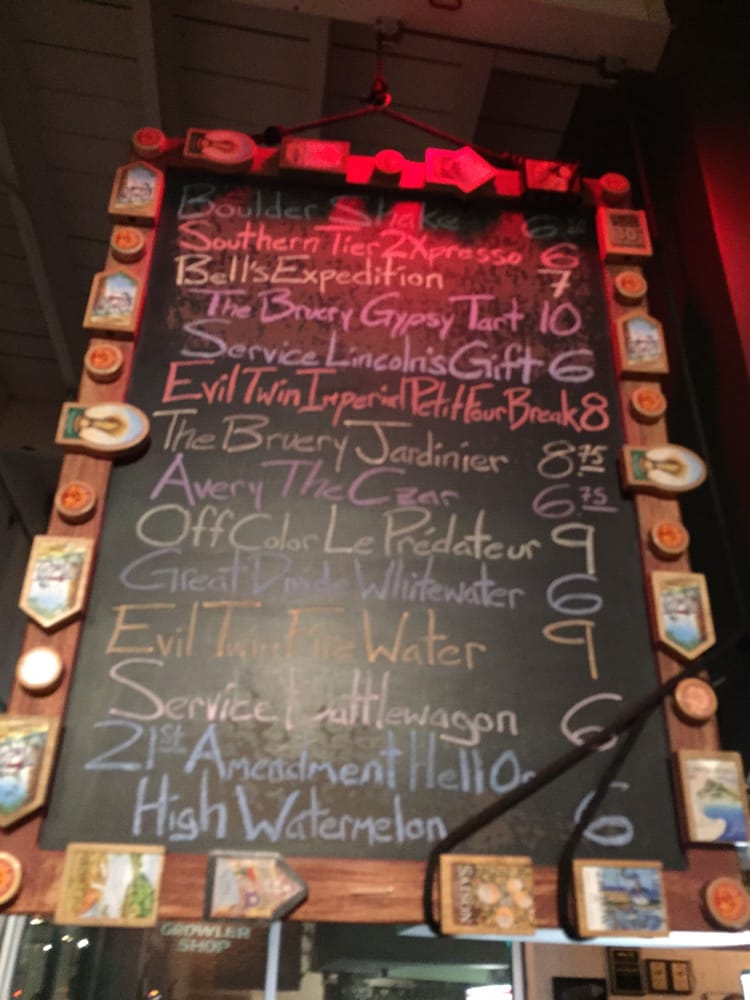 Boulder Shake 6
Southern Tier 2Xpresso 6
Bell's Expedition 7
The Bruery Gypsy Tart 10
Service Lincoln's Gift 6
Evil Twin Imperial Petit Four Break 8
The Bruery Jardinier 8.75
Avery The Czar 6.75
Off Color Le Prédateur 9
Great Divide Whitewater 6
Evil Twin Fire Water 9
Service Battlewagon 6
21st Amendment Hell Or
High Watermelon 6
SAISON
GROWLER
SHOP